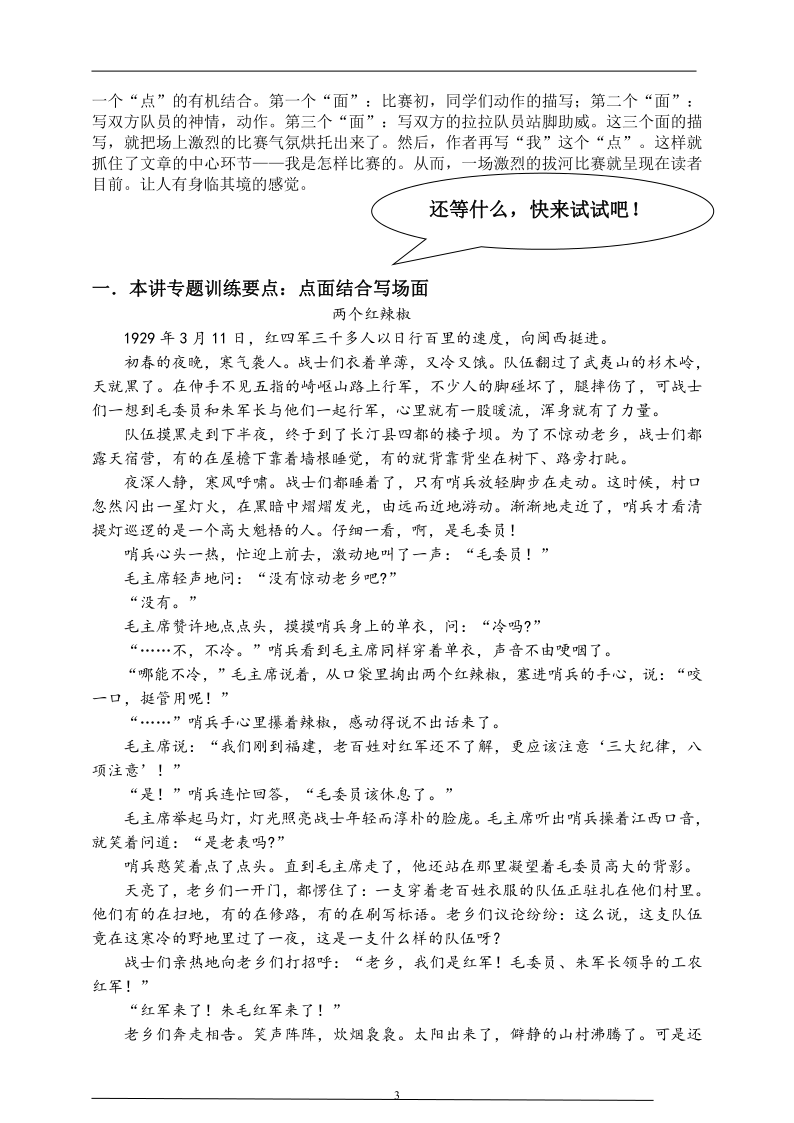 一个“点”的有机结合。第一个“面”：比赛初，同学们动作的描写；第二个“面”：
写双方队员的神情，动作。第三个“面”：写双方的拉拉队员站脚助威。这三个面的描
写，就把场上激烈的比赛气氛烘托出来了。然后，作者再写“我”这个“点”。这样就
抓住了文章的中心环节——我是怎样比赛的。从而，一场激烈的拔河比赛就呈现在读者
目前。让人有身临其境的感觉。
还等什么，快来试试吧！
一．本讲专题训练要点：点面结合写场面
两个红辣椒
1929 年 3 月 11 日，红四军三千多人以日行百里的速度，向闽西挺进。
初春的夜晚，寒气袭人。战士们衣着单薄，又冷又饿。队伍翻过了武夷山的杉木岭，
天就黑了。在伸手不见五指的崎岖山路上行军，不少人的脚碰坏了，腿摔伤了，可战士
们一想到毛委员和朱军长与他们一起行军，心里就有一股暖流，浑身就有了力量。
队伍摸黑走到下半夜，终于到了长汀县四都的楼子坝。为了不惊动老乡，战士们都
露天宿营，有的在屋檐下靠着墙根睡觉，有的就背靠背坐在树下、路旁打盹。
夜深人静，寒风呼啸。战士们都睡着了，只有哨兵放轻脚步在走动。这时候，村口
忽然闪出一星灯火，在黑暗中熠熠发光，由远而近地游动。渐渐地走近了，哨兵才看清
提灯巡逻的是一个高大魁梧的人。仔细一看，啊，是毛委员！
哨兵心头一热，忙迎上前去，激动地叫了一声：“毛委员！”
毛主席轻声地问：“没有惊动老乡吧?”
“没有。”
毛主席赞许地点点头，摸摸哨兵身上的单衣，问：“冷吗?”
“……不，不冷。”哨兵看到毛主席同样穿着单衣，声音不由哽咽了。
“哪能不冷，”毛主席说着，从口袋里掏出两个红辣椒，塞进哨兵的手心，说：“咬
一口，挺管用呢！”
“……”哨兵手心里攥着辣椒，感动得说不出话来了。
毛主席说：“我们刚到福建，老百姓对红军还不了解，更应该注意‘三大纪律，八
项注意’！”
“是！”哨兵连忙回答，“毛委员该休息了。”
毛主席举起马灯，灯光照亮战士年轻而淳朴的脸庞。毛主席听出哨兵操着江西口音，
就笑着问道：“是老表吗?”
哨兵憨笑着点了点头。直到毛主席走了，他还站在那里凝望着毛委员高大的背影。
天亮了，老乡们一开门，都愣住了：一支穿着老百姓衣服的队伍正驻扎在他们村里。
他们有的在扫地，有的在修路，有的在刷写标语。老乡们议论纷纷：这么说，这支队伍
竟在这寒冷的野地里过了一夜，这是一支什么样的队伍呀?
战士们亲热地向老乡们打招呼：“老乡，我们是红军！毛委员、朱军长领导的工农
红军！”
“红军来了！朱毛红军来了！”
老乡们奔走相告。笑声阵阵，炊烟袅袅。太阳出来了，僻静的山村沸腾了。可是还
3